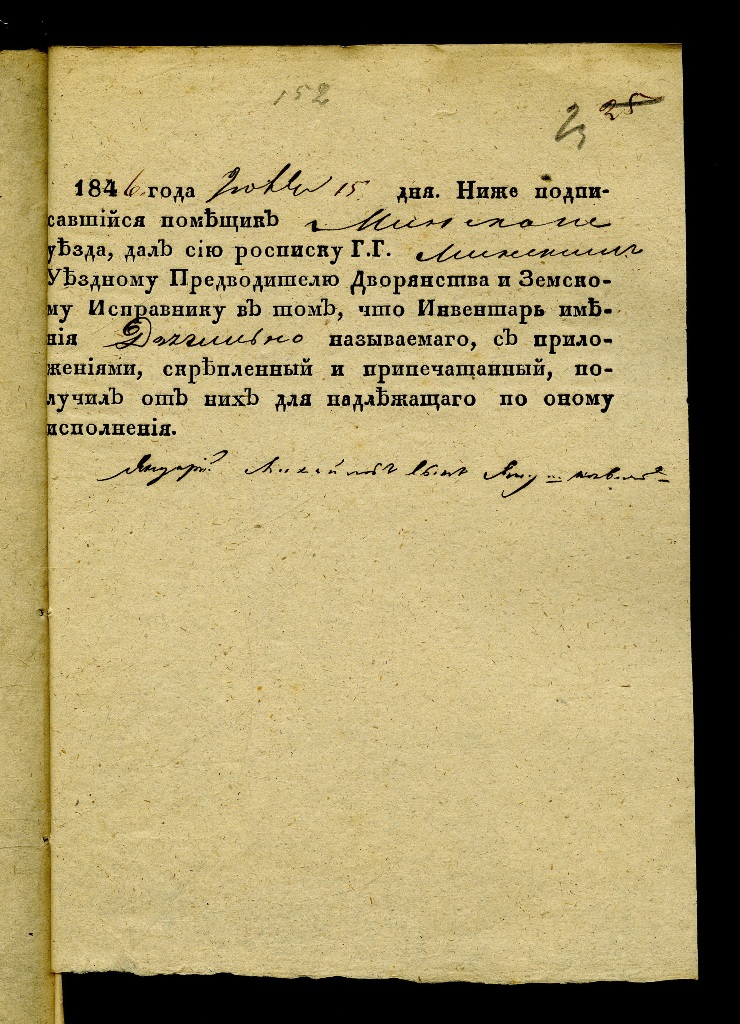 152
25
23
1846 года 15 дня. Ниже подпи-
савшійся помѣщикъ Минскаго
уѣзда, далъ сію росписку Г.Г. Минскимъ
Уѣздному Предводителю Дворянства и Земско-
му Исправнику въ томъ, что Инвентарь имѣ-
нія называемаго, съ прило-
женіями, скрѣпленный и припечатанный, по-
лучилъ отъ нихъ для надлѣжащаго по оному
исполненія.
Михайловъ сынъ